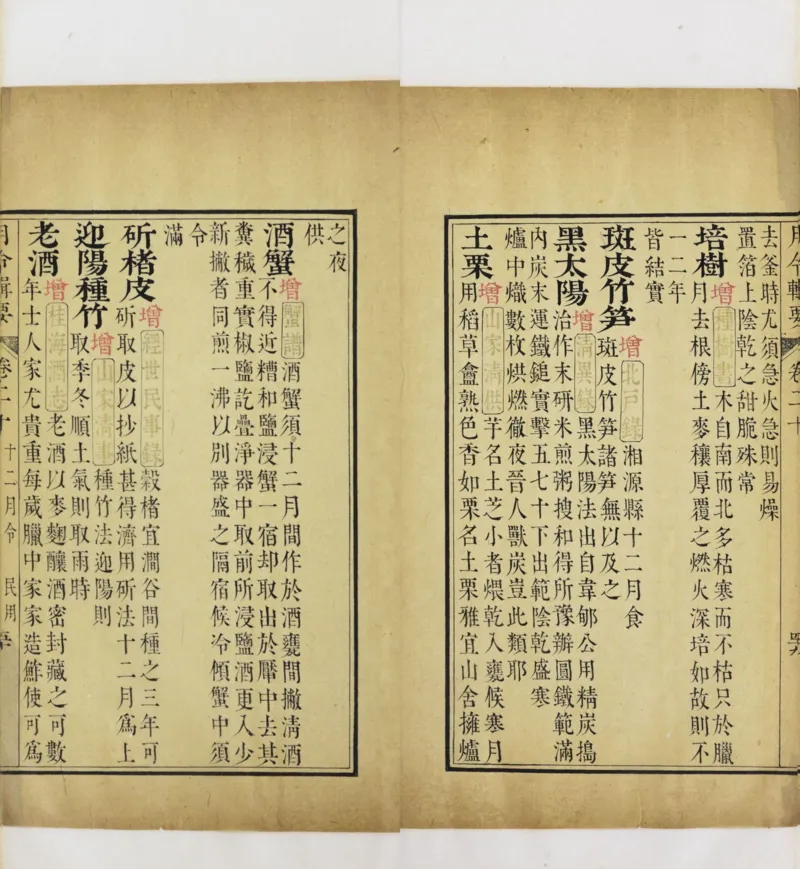 月令輯要 卷二十
去釜時尤須急火急則易燥
置箔上陰乾之甜脆殊常
培樹 增 種樹書 木自南而北多枯寒而不枯只於臘
月去根傍土麥穰厚覆之燃火深培如故則不
一二年
皆結實
斑皮竹笋 增 北戸錄 湘源縣十二月食
斑皮竹笋諸笋無以及之
黑太陽 增 清異錄 黑太陽法出自韋郇公用精炭搗
治作末研米煎粥搜和得所豫辦圓鐵範滿
内炭末運鐵鎚實擊五七十下出範陰乾盛寒
爐中熾數枚烘燃徹夜晉人獸炭豈此類耶
土栗 增 山家清供 芋名土芝小者煨乾入甕候寒月
用稻草盦熟色香如栗名土栗雅宜山舍擁爐
之夜
供
酒蟹 增 蟹譜 酒蟹須十二月間作於酒甕間撇清酒
不得近糟和鹽浸蟹一宿却取出於厴中去其
糞穢重實椒鹽訖疊淨器中取前所浸鹽酒更入少
新撇者同煎一沸以別器盛之隔宿候冷傾蟹中須
令
滿
斫楮皮 增 經世民事錄 穀楮宜澗谷間種之三年可
斫取皮以抄紙甚得濟用斫法十二月爲上
迎陽種竹 增 山家清事 種竹法迎陽則
取季冬順土氣則取雨時
老酒 增 桂海酒志 老酒以麥麴釀酒密封藏之可數
年士人家尤貴重每歲臘中家家造鮓使可爲
月令輯要 卷二十 十二月令 民用